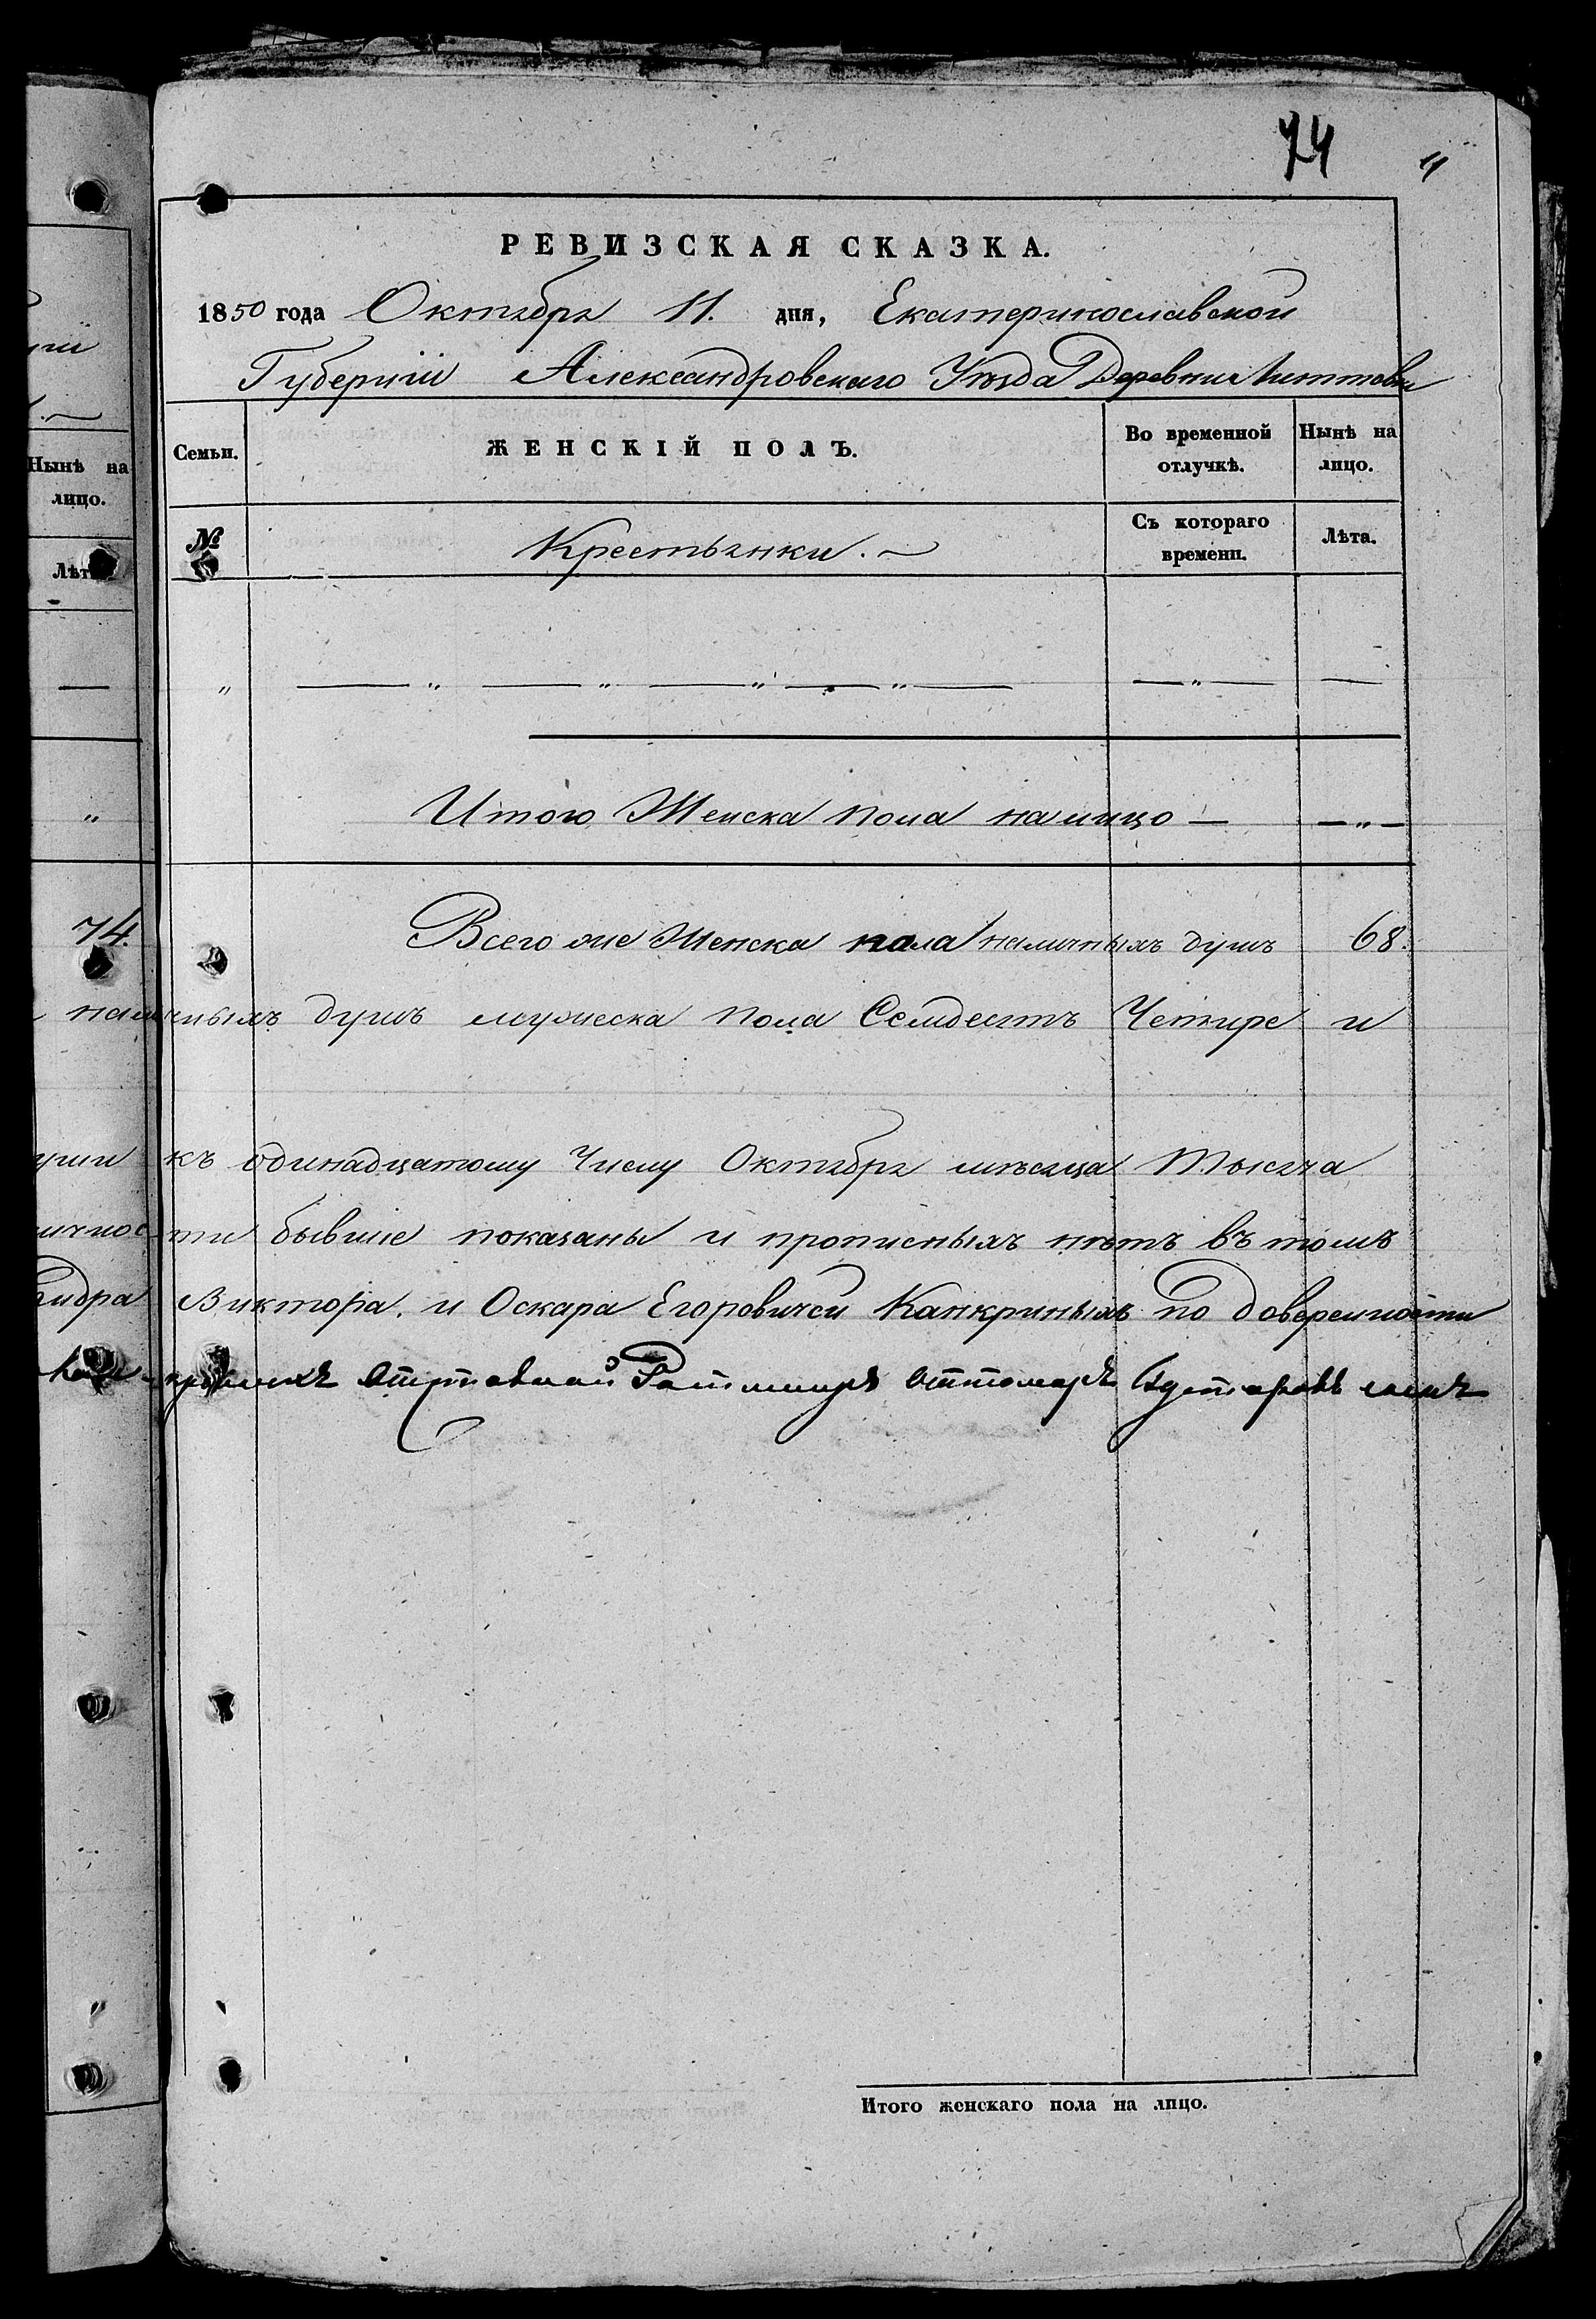 74
"
РЕВИЗСКАЯ СКАЗКА.
1850 года Октября 11. дня, Екатеринославской
Губерніи Александровскаго Уѣзда Деревни
Семьи. ЖЕНСКІЙ ПОЛЪ. Во временной отлучкѣ. Нынѣ на лицо.
№ Крестьянки. Съ котораго времени. Лѣта.
" — " — " — " — " — — " — —
Итого Женска пола на лицо — — " —
Всего же Женска пола наличныхъ душъ 68.
наличныхъ душъ мужеска пола Семдесятъ Четыре и
къ одинадцатому Числу Октября мѣсяца Тысяча
ти бывшіе показаны и прописныхъ нѣтъ въ томъ
Виктора. и Оскара Егоровичей Канкриныхъ по доверенности
Отставной Ротмистръ сынъ
Итого женскаго пола на лицо.
Нынѣ на
лицо.
Лѣта
—
"
74.